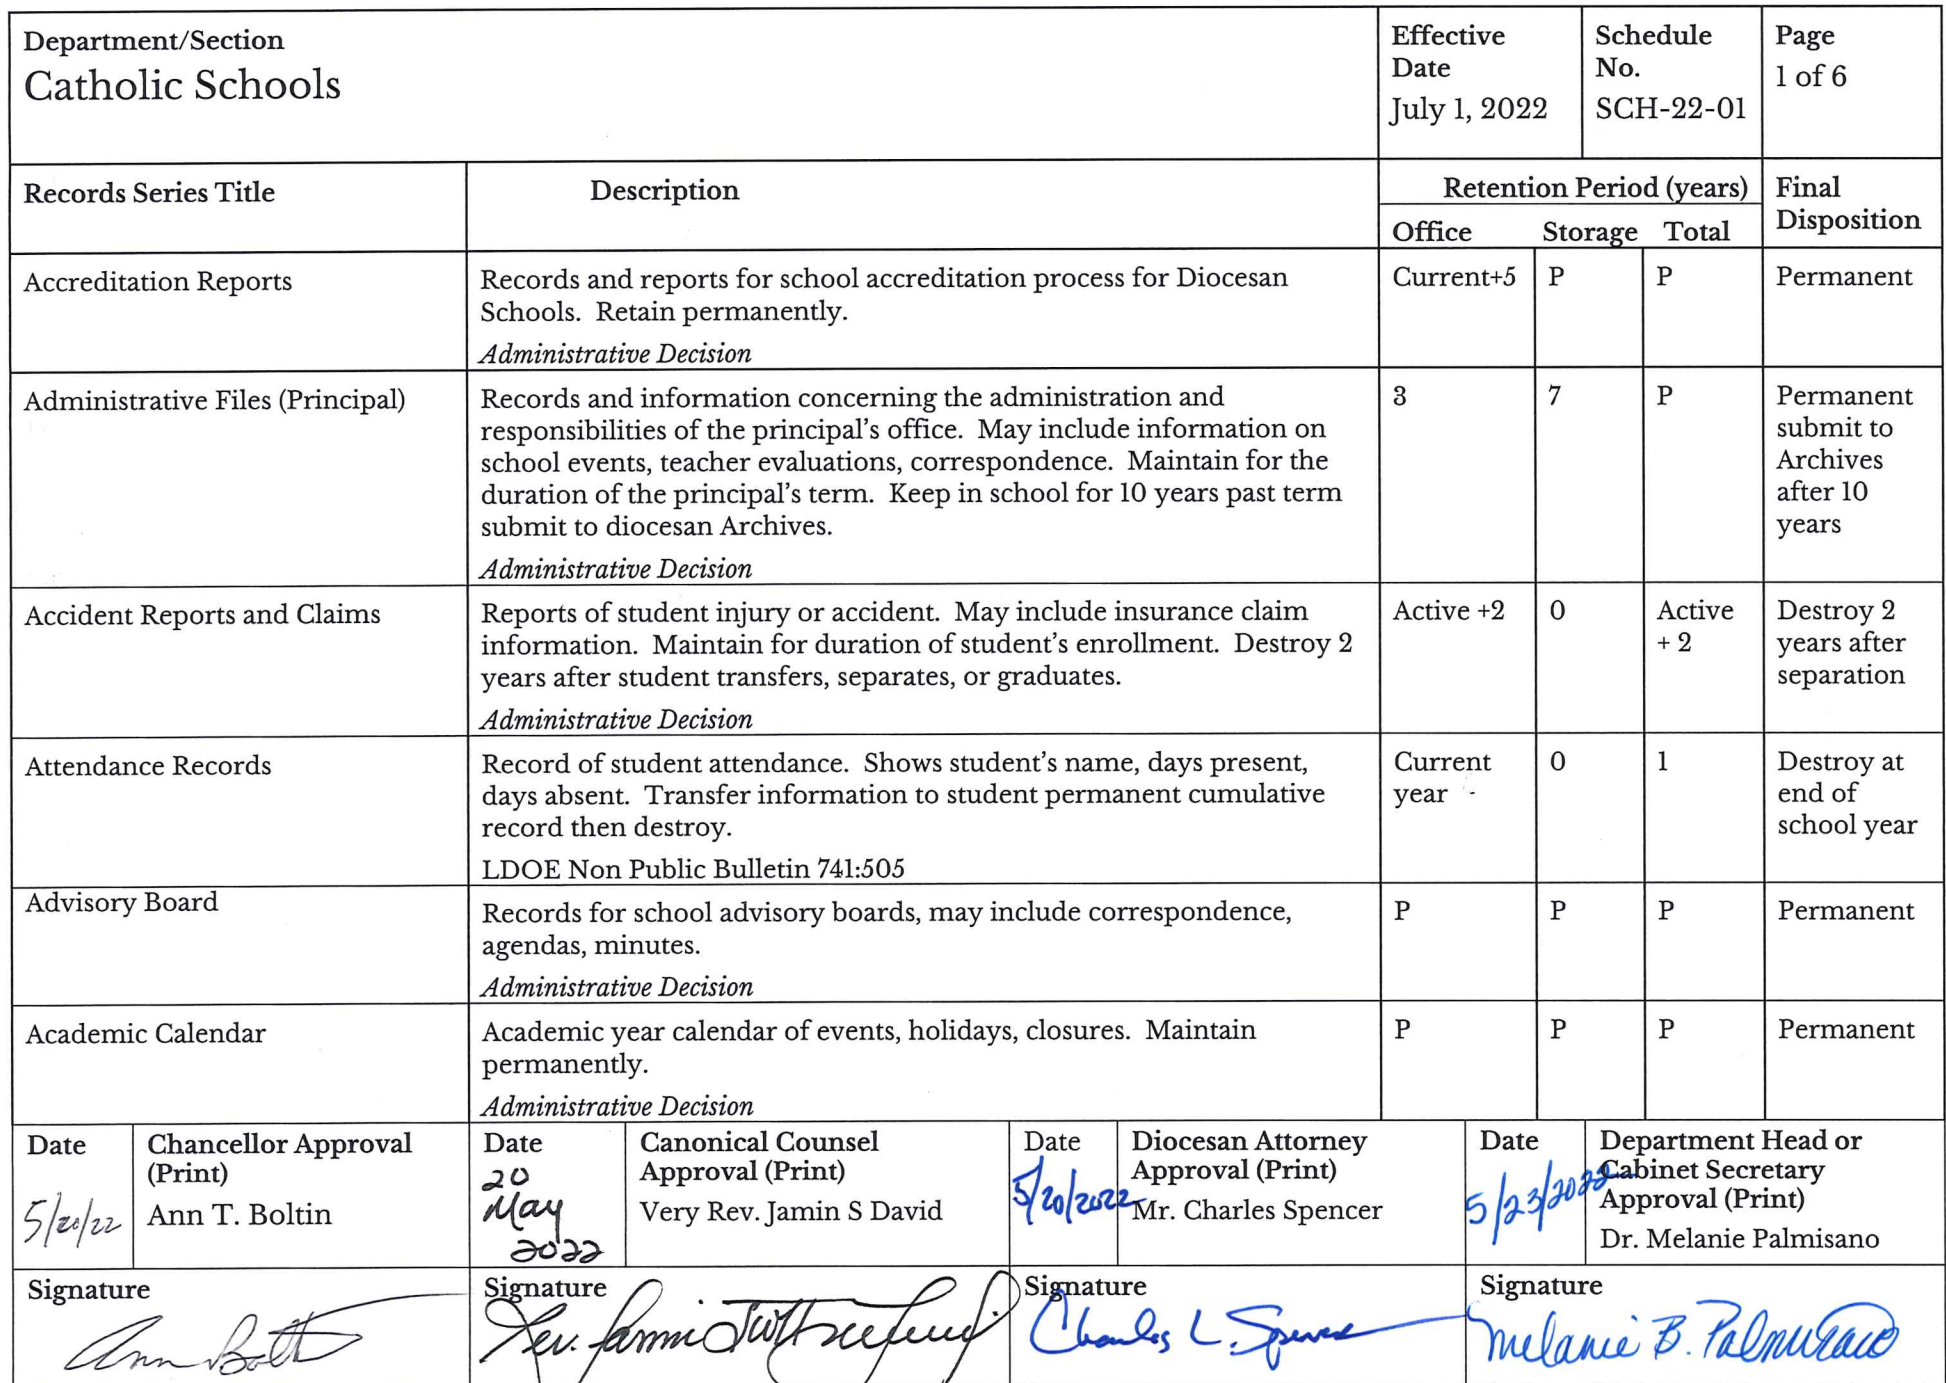 Department/Section
Catholic Schools
Effective
Date
July 1, 2022
Schedule
No.
SCH-22-01
Page
1 of 6
Records Series Title
Description
Retention Period (years)
Office Storage Total
Final
Disposition
Accreditation Reports
Records and reports for school accreditation process for Diocesan
Schools. Retain permanently.
Administrative Decision
Current+5
P
P
Permanent
Administrative Files (Principal)
Records and information concerning the administration and
responsibilities of the principal's office. May include information on
school events, teacher evaluations, correspondence. Maintain for the
duration of the principal's term. Keep in school for 10 years past term
submit to diocesan Archives.
Administrative Decision
3
7
P
Permanent
submit to
Archives
after 10
years
Accident Reports and Claims
Reports of student injury or accident. May include insurance claim
information. Maintain for duration of student's enrollment. Destroy 2
years after student transfers, separates, or graduates.
Administrative Decision
Active +2
0
Active
+ 2
Destroy 2
years after
separation
Attendance Records
Record of student attendance. Shows student's name, days present,
days absent. Transfer information to student permanent cumulative
record then destroy.
LDOE Non Public Bulletin 741:505
Current
year
0
1
Destroy at
end of
school year
Advisory Board
Records for school advisory boards, may include correspondence,
agendas, minutes.
Administrative Decision
P
P
P
Permanent
Academic Calendar
Academic year calendar of events, holidays, closures. Maintain
permanently.
Administrative Decision
P
P
P
Permanent
Date
5/20/22
Chancellor Approval
(Print)
Ann T. Boltin
Date
20
May
2022
Canonical Counsel
Approval (Print)
Very Rev. Jamin S David
Date
5/20/2022
Diocesan Attorney
Approval (Print)
Mr. Charles Spencer
Date
5/23/2022
Department Head or
Cabinet Secretary
Approval (Print)
Dr. Melanie Palmisano
Signature
Ann Bolt
Signature
Rev.
Signature
Charles L. Spencer
Signature
Melanie B. Palmisano